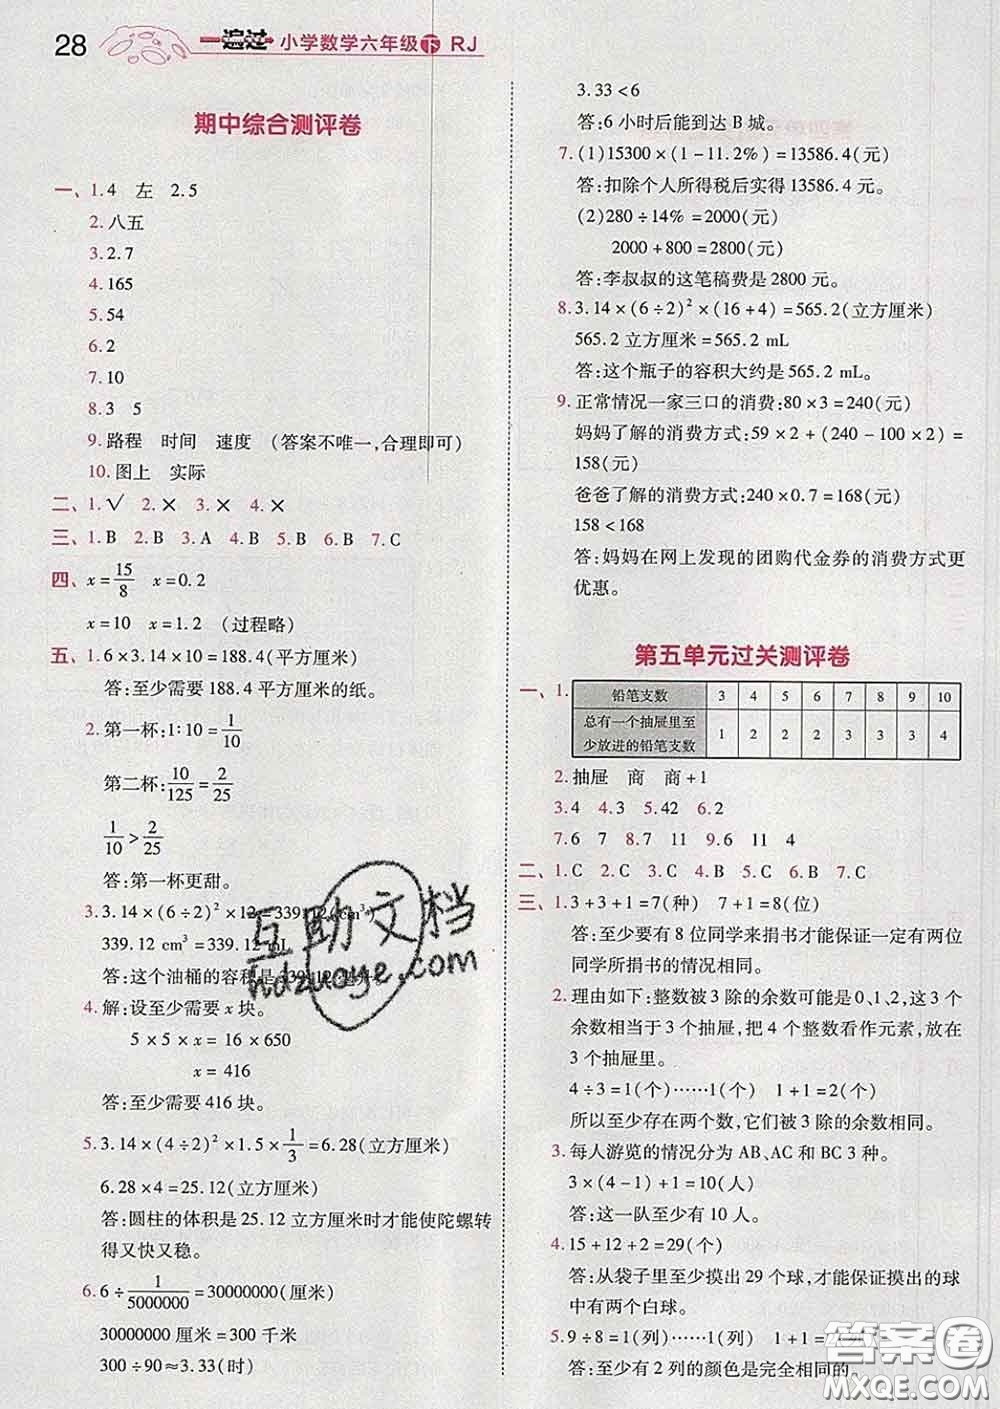 28 一遍过 小学数学六年级下 RJ
期中综合测评卷
一、1.4 左 2.5
2.八五
3.2.7
4.165
5.54
6.2
7.10
8.3 5
9.路程 时间 速度 (答案不唯一,合理即可)
10.图上 实际
二、1.√ 2.× 3.× 4.×
三、1.B 2.B 3.A 4.B 5.B 6.B 7.C
四、x=15/8 x=0.2
x=10 x=1.2 (过程略)
五、1.6×3.14×10=188.4(平方厘米)
答:至少需要188.4平方厘米的纸。
2.第一杯:1∶10=1/10
第二杯:10/125=2/25
1/10>2/25
答:第一杯更甜。
3.3.14×(6÷2)²×12=339.12(cm³)
339.12 cm³=339.12 mL
答:这个油桶的容积是339.12毫升。
4.解:设至少需要x块。
5×5×x=16×650
x=416
答:至少需要416块。
5.3.14×(4÷2)²×1.5×1/3=6.28(立方厘米)
6.28×4=25.12(立方厘米)
答:圆柱的体积是25.12立方厘米时才能使陀螺转
得又快又稳。
6.6÷1/5000000=30000000(厘米)
30000000厘米=300千米
300÷90≈3.33(时)
3.33<6
答:6小时后能到达B城。
7.(1)15300×(1-11.2%)=13586.4(元)
答:扣除个人所得税后实得13586.4元。
(2)280÷14%=2000(元)
2000+800=2800(元)
答:李叔叔的这笔稿费是2800元。
8.3.14×(6÷2)²×(16+4)=565.2(立方厘米)
565.2立方厘米=565.2 mL
答:这个瓶子的容积大约是565.2 mL。
9.正常情况一家三口的消费:80×3=240(元)
妈妈了解的消费方式:59×2+(240-100×2)=
158(元)
爸爸了解的消费方式:240×0.7=168(元)
158<168
答:妈妈在网上发现的团购代金券的消费方式更
优惠。
第五单元过关测评卷
一、1. 铅笔支数 3 4 5 6 7 8 9 10
总有一个抽屉里至
少放进的铅笔支数 1 2 2 2 3 3 3 4
2.抽屉 商 商+1
3.4 4.3 5.42 6.2
7.6 7 8.7 11 9.11 4
二、1.C 2.C 3.C 4.B 5.C 6.B 7.C
三、1.3+3+1=7(种) 7+1=8(位)
答:至少要有8位同学来捐书才能保证一定有两位
同学所捐书的情况相同。
2.理由如下:整数被3除的余数可能是0、1、2,这3个
余数相当于3个抽屉,把4个整数看作元素,放在
3个抽屉里。
4÷3=1(个)……1(个) 1+1=2(个)
所以至少存在两个数,它们被3除的余数相同。
3.每人游览的情况分为AB、AC和BC 3种。
3×(4-1)+1=10(人)
答:这一队至少有10人。
4.15+12+2=29(个)
答:从袋子里至少摸出29个球,才能保证摸出的球
中有两个白球。
5.9÷8=1(列)……1(列) 1+1=2(列)
答:至少有2列的颜色是完全相同的。
互助文档
hdzuoye.com
答案圈
MXQE.COM